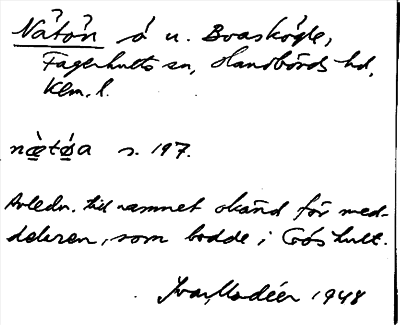 Nátó'n å u. Boaskögle,
Fagerhults sn, Handbörds hd,
Klm. l.
nætøsa s. 197.
Avledn. till namnet okänd för med-
delaren, som bodde i Gåshult.
Ivar Modéer 1948